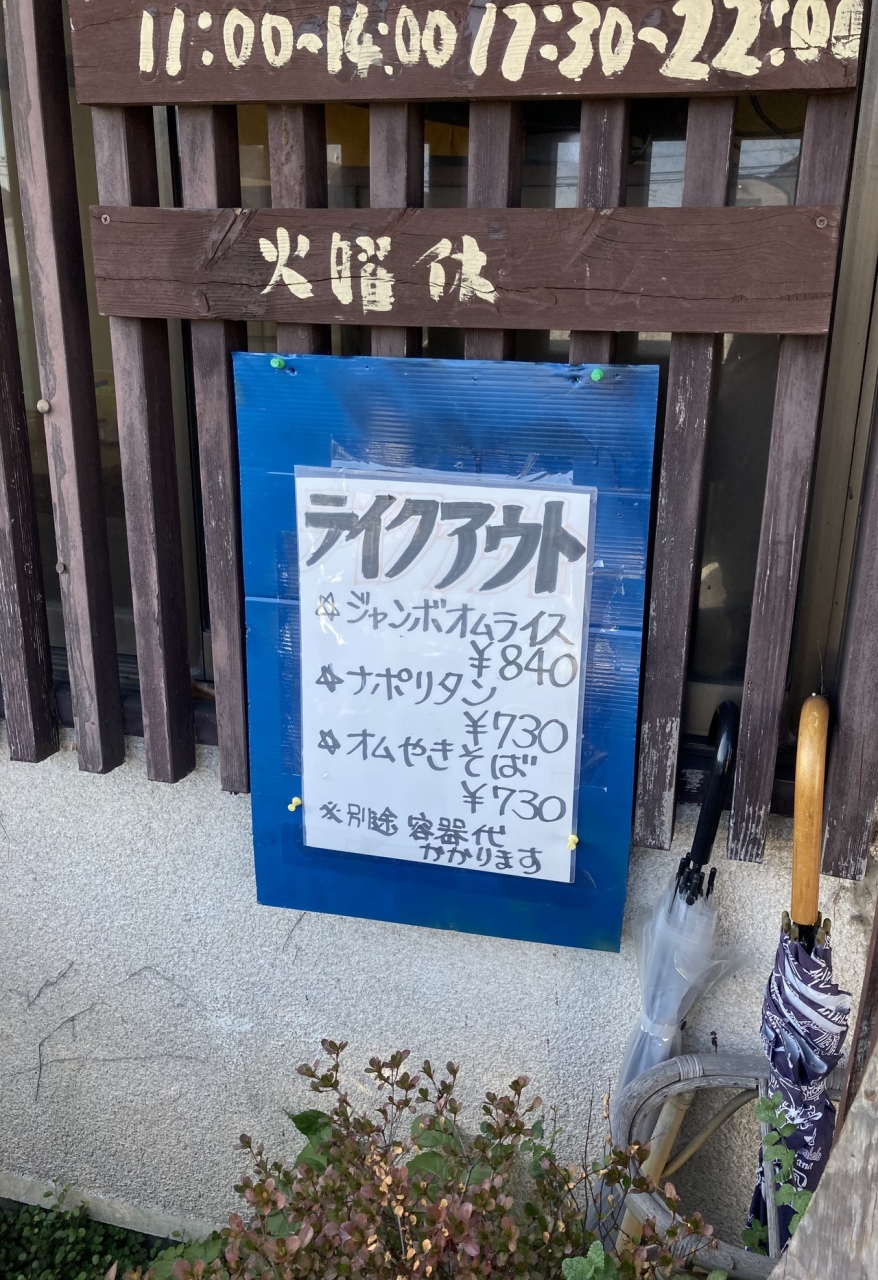 11:00~14:00 17:30~22:00
火曜 休
テイクアウト
☆ジャンボオムライス
¥840
☆ナポリタン
¥730
☆オムやきそば
¥730
※別途 容器代
かかります